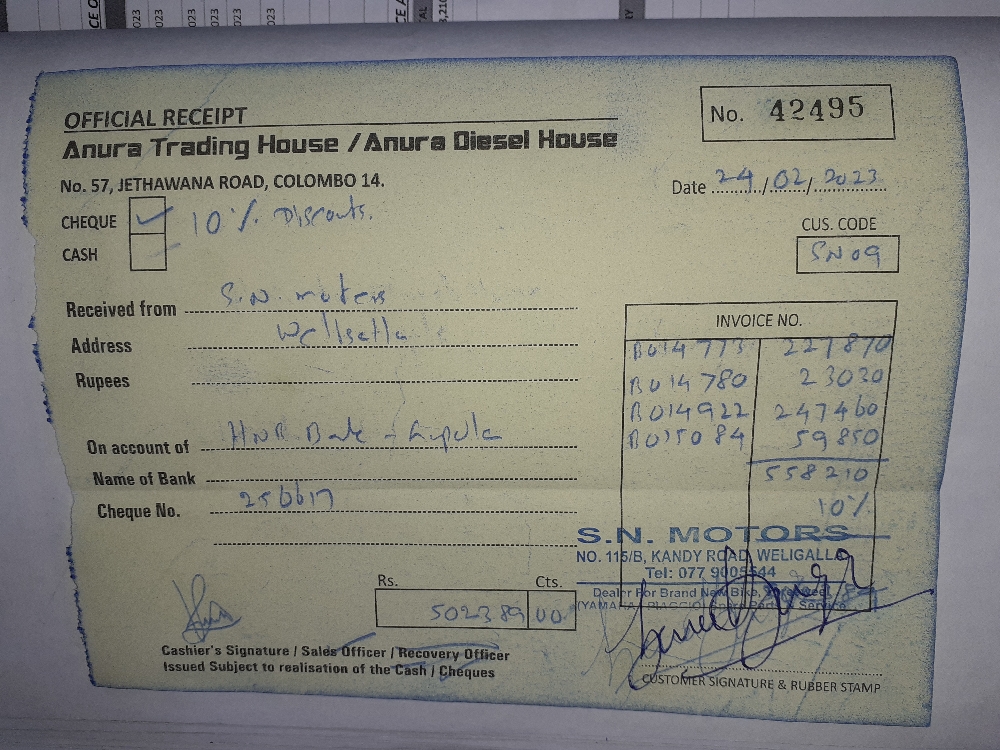 OFFICIAL RECEIPT
No. 42495
Anura Trading House / Anura Diesel House
No. 57, JETHAWANA ROAD, COLOMBO 14.
Date 24/02/2023
CHEQUE ✓ 10%
CUS. CODE
CASH
SN09
Received from S.N. moters
INVOICE NO.
Address
B014773 227870
Rupees
B014780 23030
B014922 247460
On account of HNB Bank
B015084 59850
Name of Bank
558210
Cheque No. 256617
10%
S.N. MOTORS
NO. 115/B, KANDY ROAD, WELIGALLA
Tel: 077 9005544
Rs. Cts.
Dealer For Brand New Bike,
502389 00
(YAMAHA / PIAGGIO) Service
Cashier's Signature / Sales Officer / Recovery Officer
Issued Subject to realisation of the Cash / Cheques
CUSTOMER SIGNATURE & RUBBER STAMP